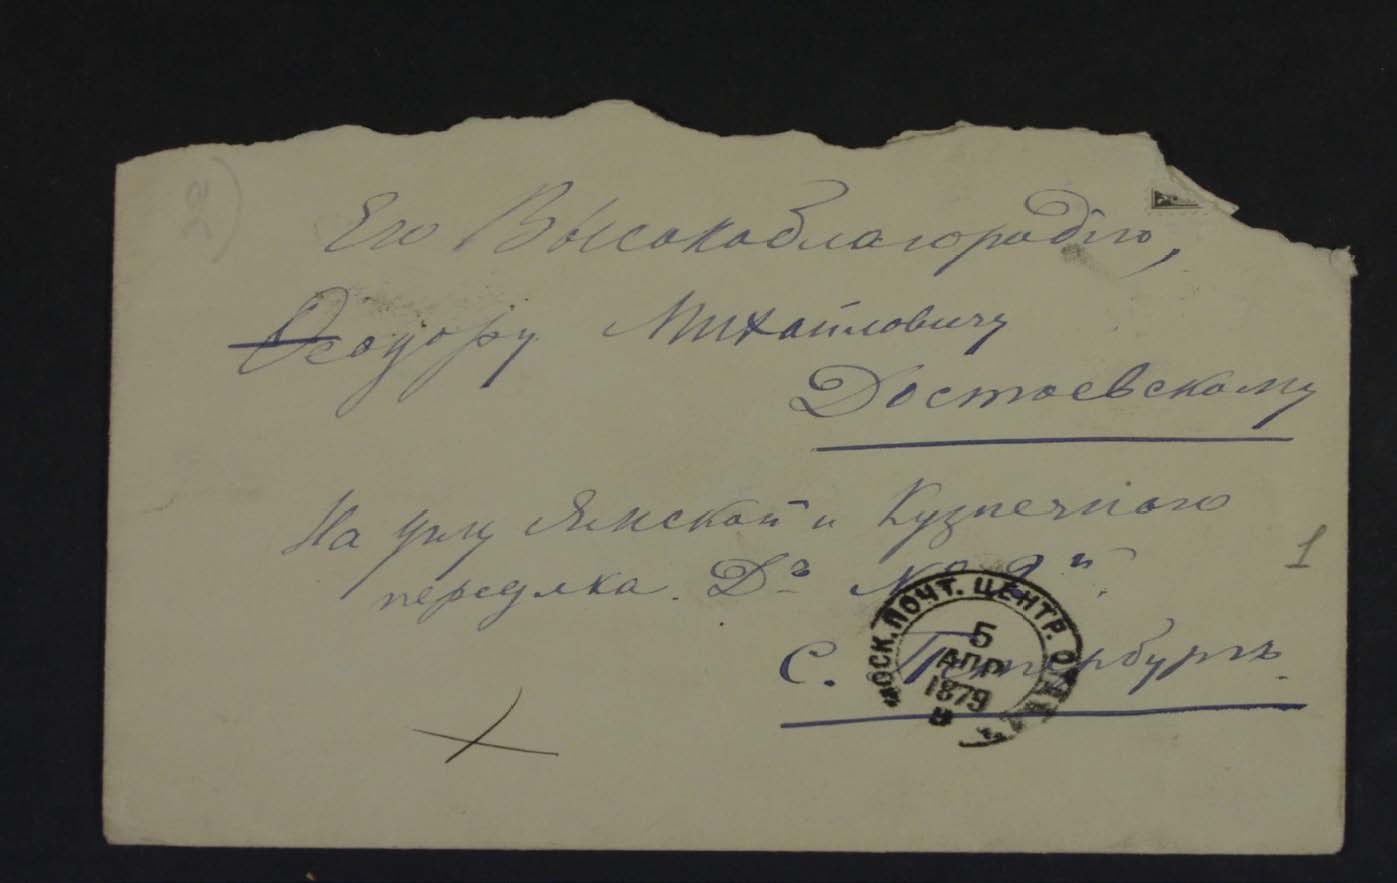 2)
Его Высокоблагородію,
Ѳеодору Михайловичу
Достоевскому
На углу Ямской и Кузнечного
переулка. Дъ №
1
С. Петербургъ.
МОСК. ПОЧТ. ЦЕНТР.
5
АПР
1879